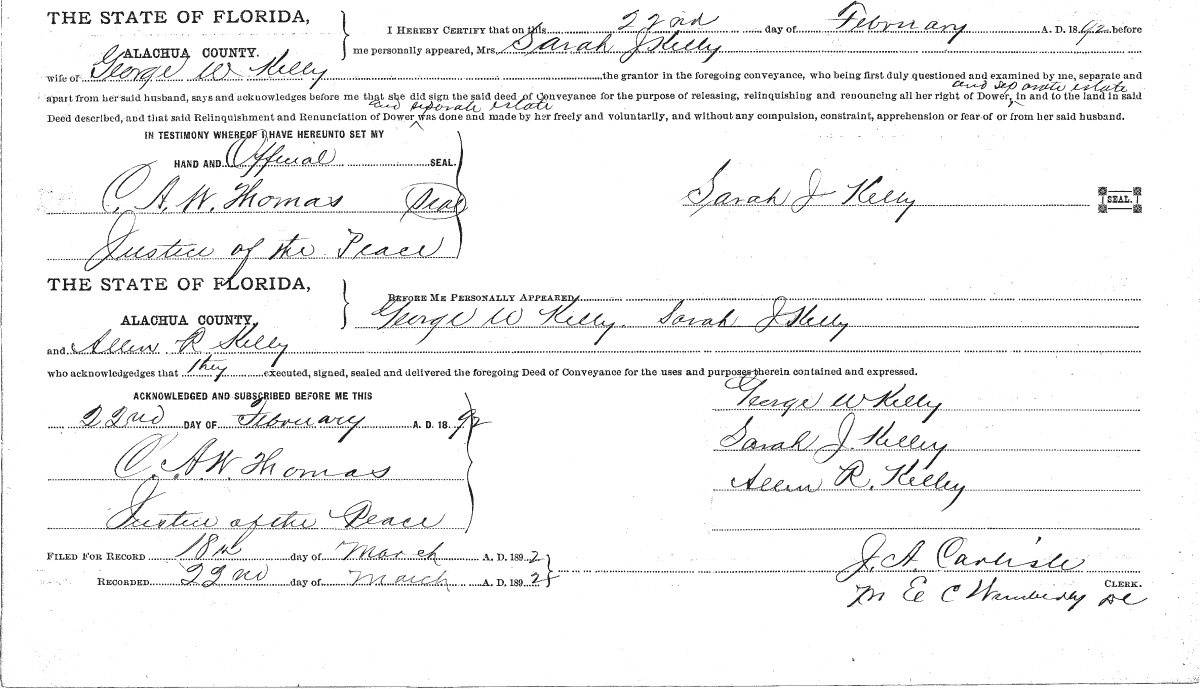 THE STATE OF FLORIDA,
ALACHUA COUNTY.
I HEREBY CERTIFY that on this 22nd day of February A. D. 1892 before
me personally appeared, Mrs. Sarah J Kelly
wife of George W Kelly the grantor in the foregoing conveyance, who being first duly questioned and examined by me, separate and
and separate estate
apart from her said husband, says and acknowledges before me that she did sign the said deed of Conveyance for the purpose of releasing, relinquishing and renouncing all her right of Dower, in and to the land in said
and separate estate
Deed described, and that said Relinquishment and Renunciation of Dower was done and made by her freely and voluntarily, and without any compulsion, constraint, apprehension or fear of or from her said husband.
IN TESTIMONY WHEREOF I HAVE HEREUNTO SET MY
HAND AND Official SEAL.
C. A. W. Thomas Seal
Sarah J Kelly SEAL.
Justice of the Peace
THE STATE OF FLORIDA,
ALACHUA COUNTY,
BEFORE ME PERSONALLY APPEARED
George W Kelly. Sarah J Kelly
and Allen R Kelly
who acknowledgedges that they executed, signed, sealed and delivered the foregoing Deed of Conveyance for the uses and purposes therein contained and expressed.
ACKNOWLEDGED AND SUBSCRIBED BEFORE ME THIS
22nd DAY OF February A. D. 1892
C. A. W. Thomas
Justice of the Peace
George W Kelly
Sarah J. Kelley
Allen R. Kelley
FILED FOR RECORD 18th day of March A. D. 1892
RECORDED 22nd day of March A. D. 1892
J. A. Carlisle
CLERK.
M E C Wimberly DC